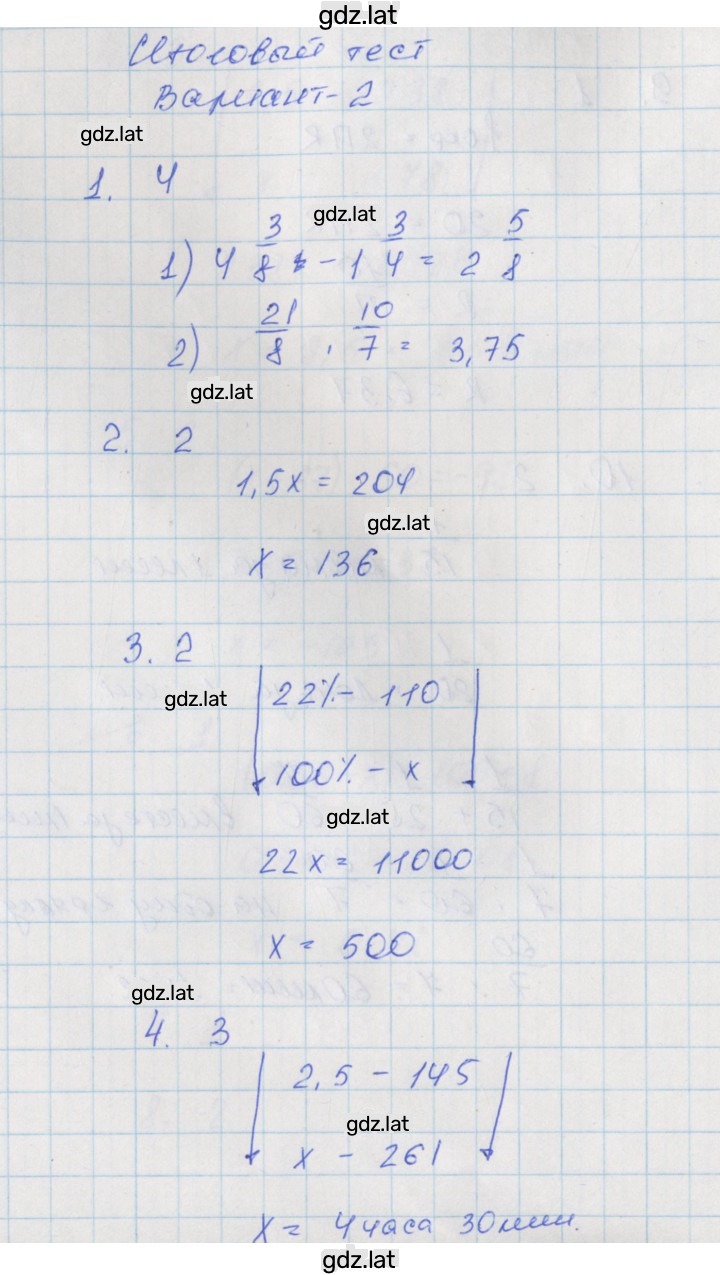 gdz.lat
Итоговый тест
Вариант-2
gdz.lat
1. 4
gdz.lat
1) 4 3/8 - 1 3/4 = 2 5/8
2) 21/8 · 10/7 = 3,75
gdz.lat
2. 2
1,5x = 204
gdz.lat
x = 136
3. 2
gdz.lat
22% - 110
100% - x
gdz.lat
22x = 11000
x = 500
gdz.lat
4. 3
2,5 - 145
gdz.lat
x - 261
x = 4 часа 30 мин.
gdz.lat